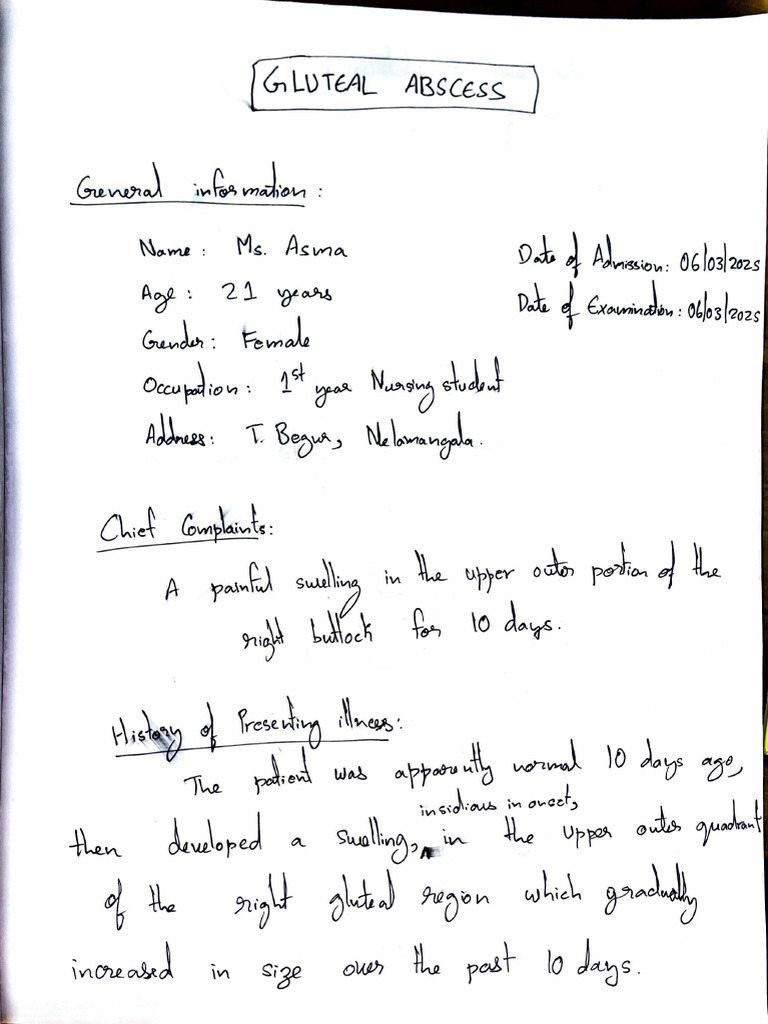 GLUTEAL ABSCESS
General information:
Name: Ms. Asma
Date of Admission: 06/03/2025
Age: 21 years
Date of Examination: 06/03/2025
Gender: Female
Occupation: 1st year Nursing student
Address: T. Begur, Nelamangala.
Chief Complaints:
A painful swelling in the upper outer portion of the
right buttock for 10 days.
History of Presenting illness:
The patient was apparently normal 10 days ago,
insidious in onset,
then developed a swelling, in the upper outer quadrant
of the right gluteal region which gradually
increased in size over the past 10 days.